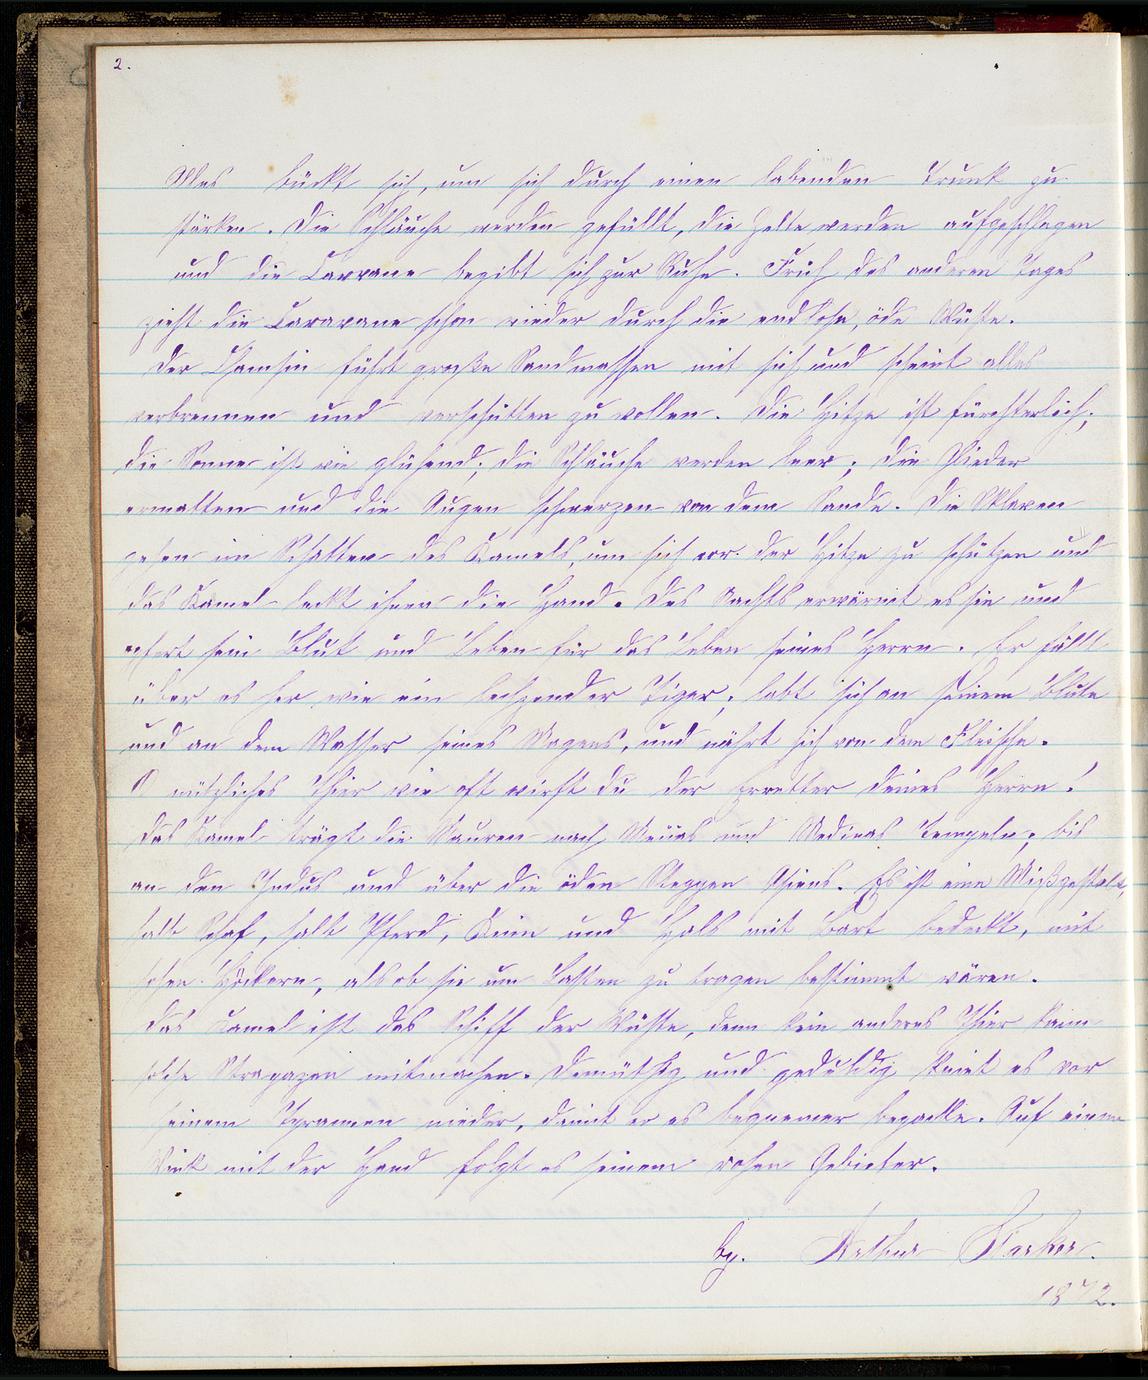 2.
Alles bückt sich, um sich durch einen labenden Trunk zu
stärken. Die Schläuche werden gefüllt, die Zelte werden aufgeschlagen
und die Carvane begibt sich zur Ruhe. Früh des anderen Tages
zieht die Caravane schon wieder durch die endlose, öde Wüste.
Der Chamsin führt große Sandmassen mit sich und scheint alles
verbrennen und verschütten zu wollen. Die Hitze ist fürchterlich;
die Sonne ist wie glühend; die Schläuche werden leer; die Glieder
ermatten und die Augen schmerzen von dem Sande. Die Sklaven
gehen im Schatten des Kamels, um sich vor der Hitze zu schützen und
das Kamel leckt ihnen die Hand. Des Nachts erwärmt es sie und
opfert sein Blut und Leben für das Leben seines Herrn. Er fällt
über es her wie ein lechzender Tiger; labt sich an seinem Blute
und an dem Wasser seines Magens, und nährt sich von dem Fleische.
O nützliches Thier wie oft wirst du der Erretter deines Herrn!
Das Kamel trägt die Mauren nach Mekkas und Medinas Tempeln; bis
an den Indus und über die öden Steppen Asiens. Es ist eine Mißgestalt,
halb Schaf, halb Pferd, Kinn und Hals mit Bart bedeckt, mit
hohen Höckern, als ob sie um Lasten zu tragen bestimmt wären.
Das Kamel ist das Schiff der Wüste, denn kein anderes Thier kann
solche Strapazen mitmachen. Demüthig und geduldig kniet es vor
seinem Tyrannen nieder, damit er es bequemer bepacke. Auf einen
Wink mit der Hand folgt es seinem rohen Gebieter.
Arthur
1872.